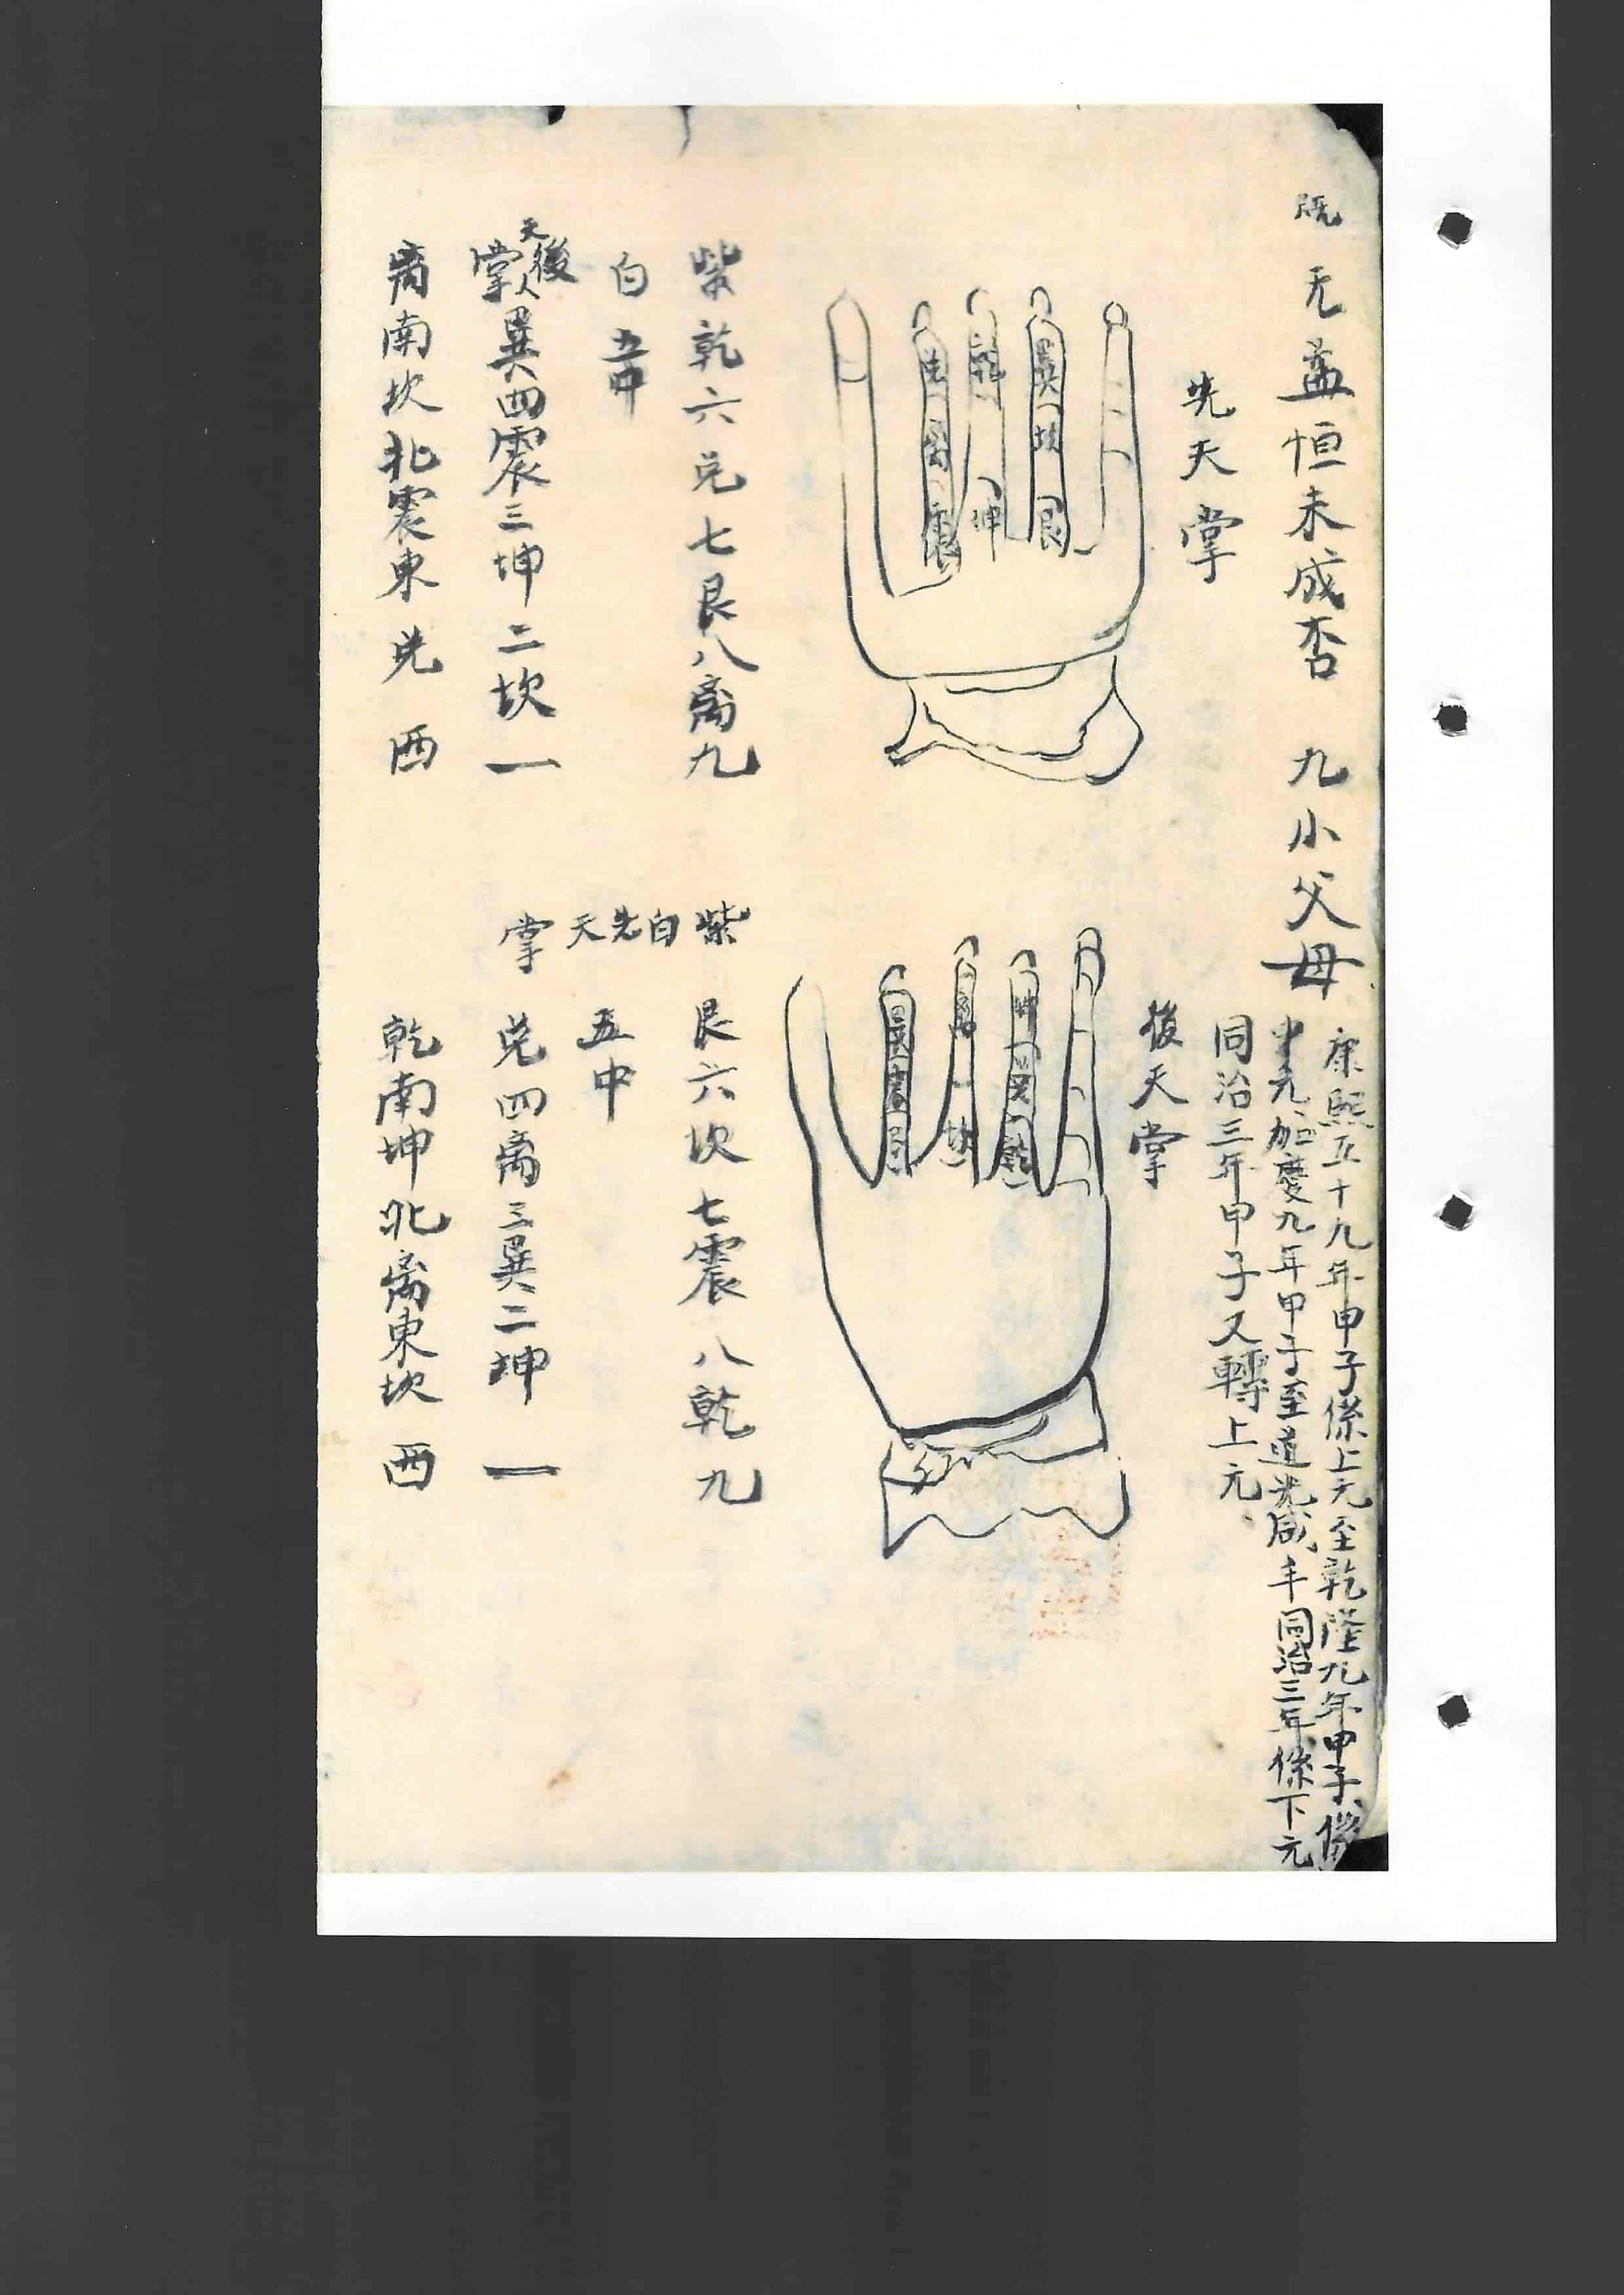 既 无 益恒未成否 九小父母
康熙五十九年甲子係上元至乾隆九年甲子係
中元加慶九年甲子至道光咸丰同治三年係下元
同治三年甲子又轉上元
先天掌
巽坎艮
乾坤
兑离震
後天掌
坤兑乾
离坎
巽震艮
紫乾六兑七艮八离九
白五中
後天掌巽四震三坤二坎一
离南坎北震東兑西
紫艮六坎七震八乾九
白五中
先天掌兑四离三巽二坤一
乾南坤北离東坎西